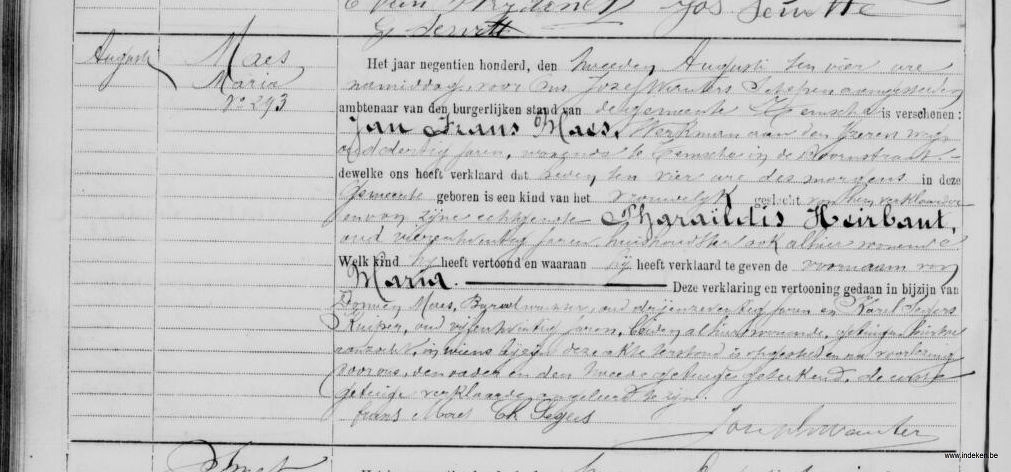 Augusti
Maes
Maria
No 293
Het jaar negentien honderd, den tweeden Augusti ten vier ure
namiddag, voor Ons Jozef Wauters Schepen
ambtenaar van den burgerlijken stand van de gemeente Temsche is verschenen :
Jan Frans Maes, Werkman aan den Yzeren weg,
oud dertig jaren, woonende te Temsche in de Doornstraat
dewelke ons heeft verklaard dat heden ten vier ure des morgens in deze
Gemeente geboren is een kind van het vrouwelijk geslacht van hem verklaarder
en van zijne echtgenote Pharaildis Heirbaut,
oud jaren, ook alhier wonende
Welk kind hij heeft vertoond en waaraan hij heeft verklaard te geven de voornaam van
Maria. Deze verklaring en vertooning gedaan in bijzijn van
Maes, oud drijenzeventig jaren en Karel Segers
Kuiper, oud vijfentwintig jaren, beiden alhier wonende, getuigen hiertoe
aanzocht, in wiens bijzijn deze akte opgesteld en na voorlezing
voor ons, den vader en den tweede getuige geteekend, de eerste
getuige verklaarde ongeleerd te zijn.
frans Maes Ch Segers
Jos Wauters
www.indeken.be